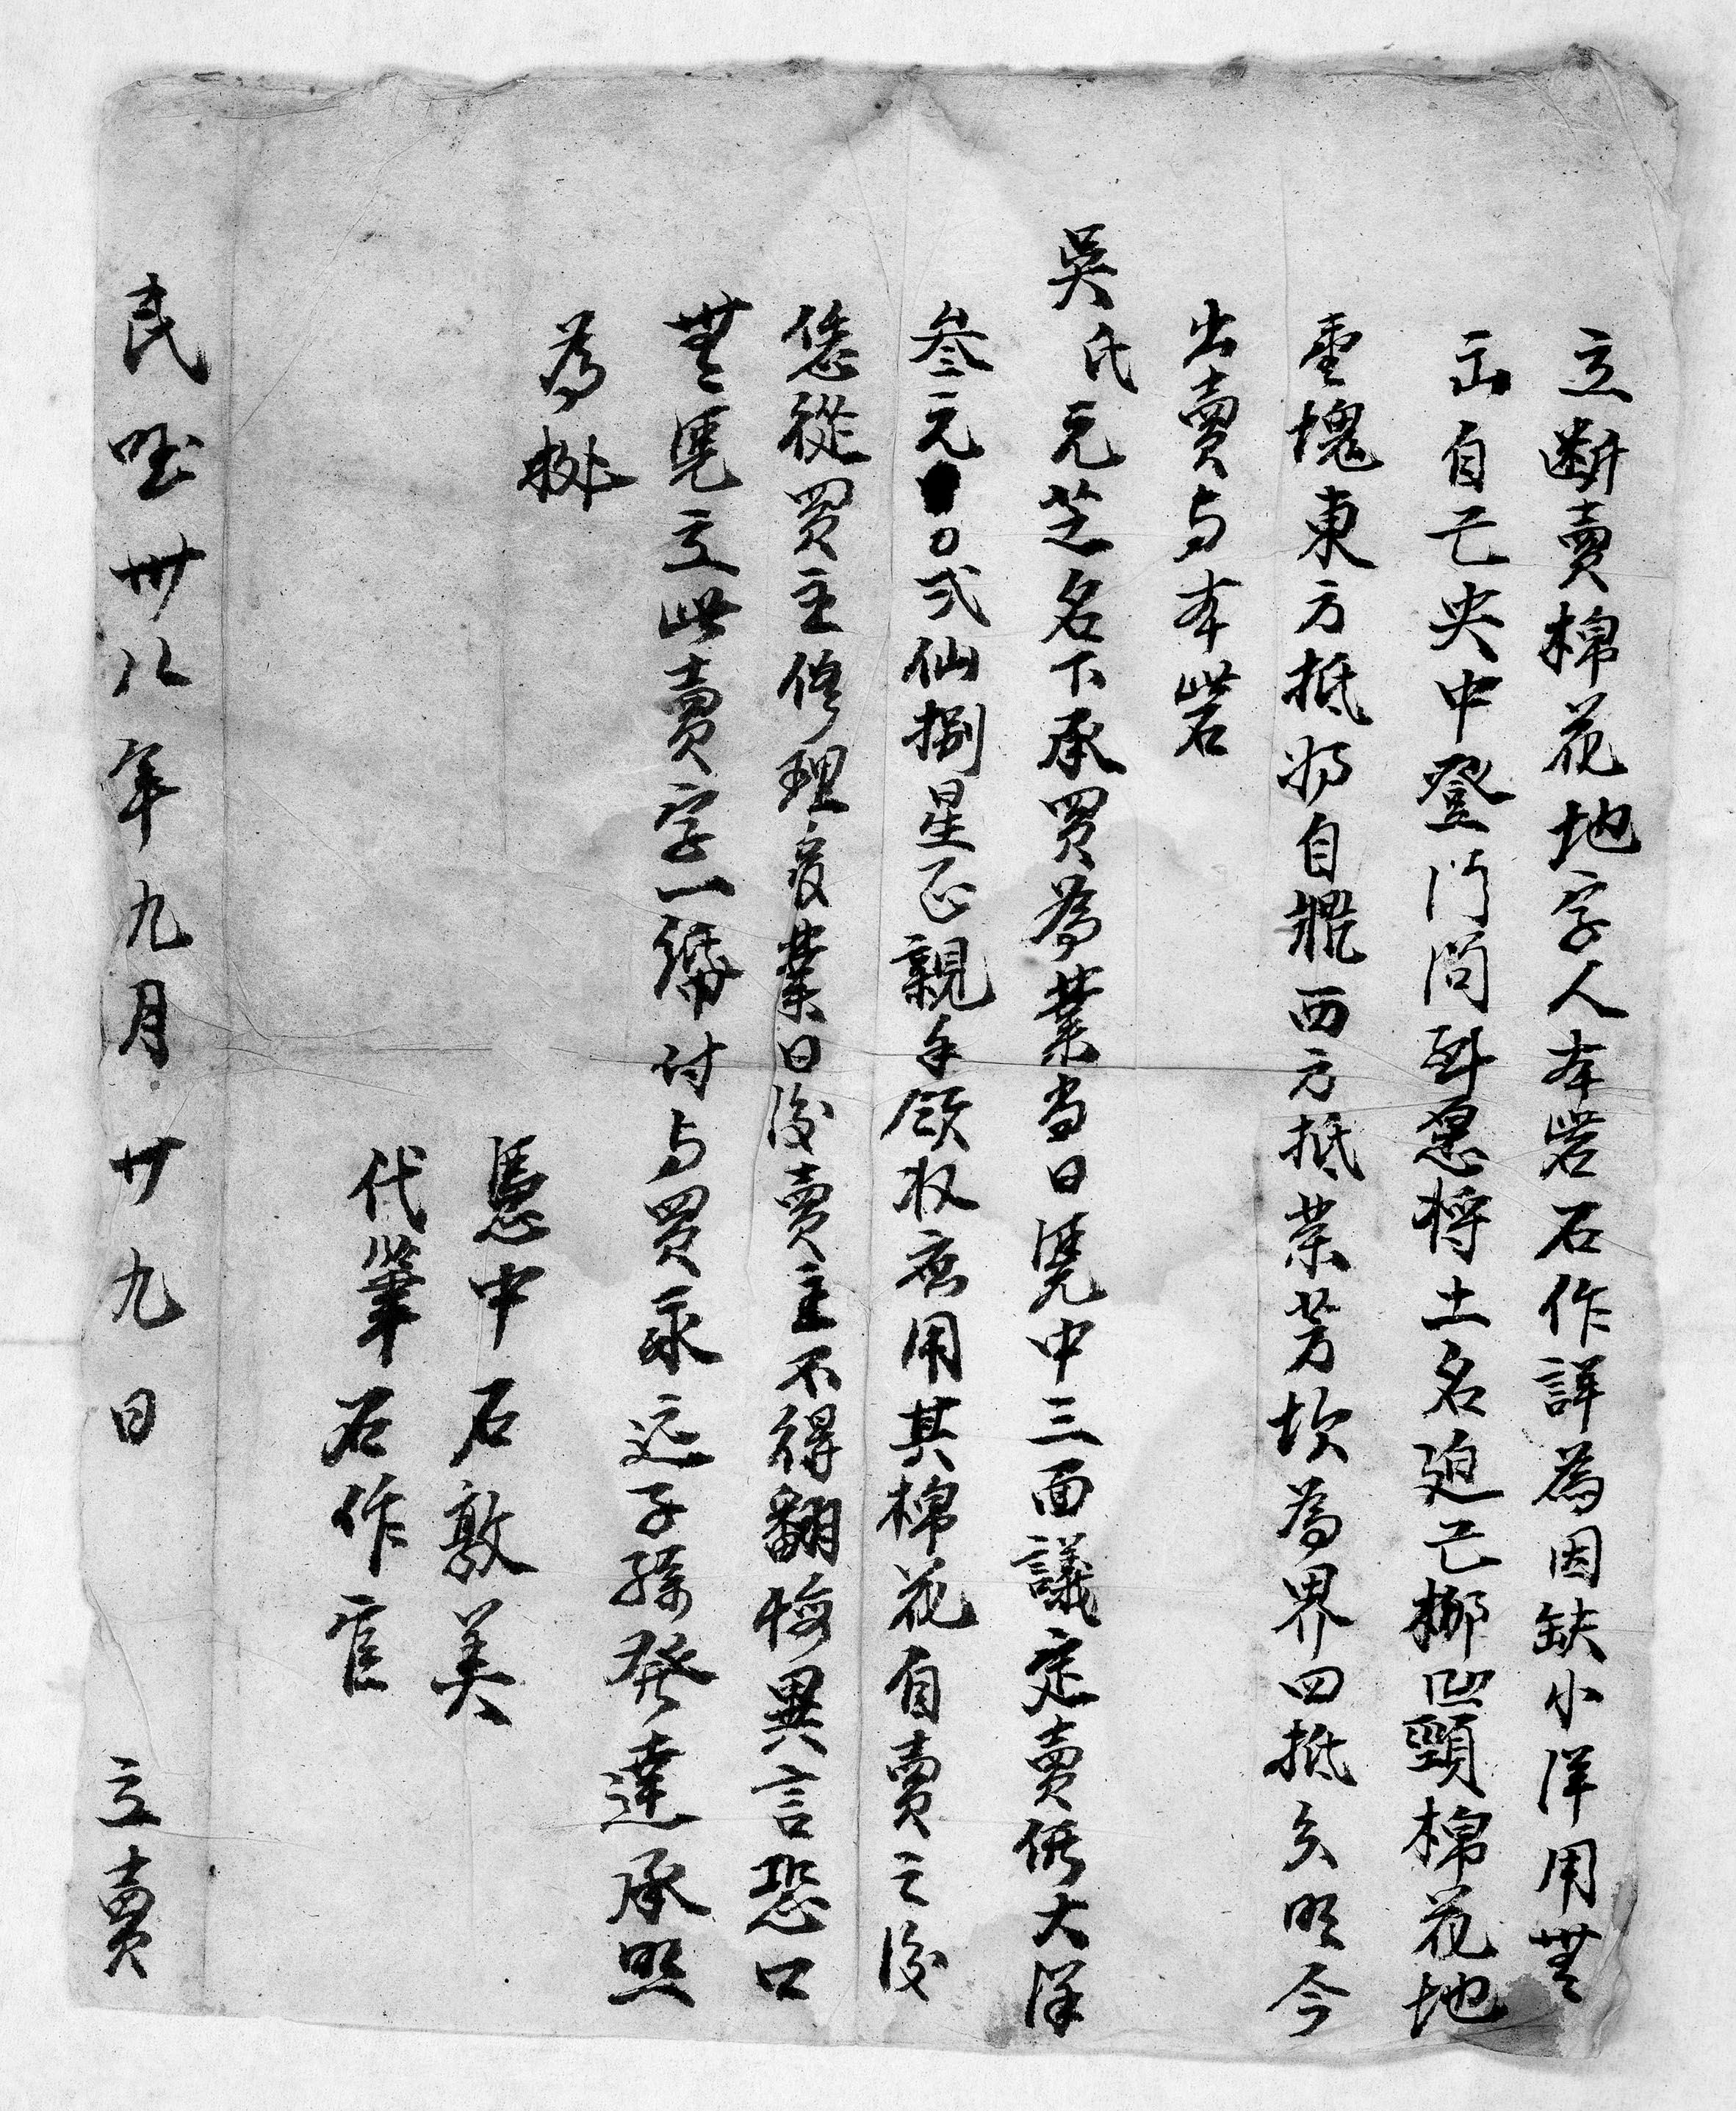 立断賣棉花地字人本砦石作詳為因缺小洋用無
出自己央中登門問到愿將土名廹己梛凹頸棉花地
壹塊東方抵 自 西方抵業芳坎為界四抵分明今
出賣与本砦
吳氏元芝名下承買為業当日凴中三面議定賣價大洋
叁元〇弍仙捌星正親手領收應用其棉花自賣之後
恁從買主修理管業日後賣主不得翻悔異言恐口
無凴立此賣字一紙付与買永远子孫發達承照
為挑
憑中石敦美
代筆石作官
民國卅八年九月廿九日 立賣